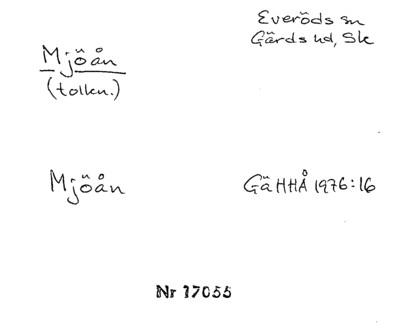 Everöds sn
Gärds hd, Sk
Mjöån
(tolkn.)
Mjöån
GäHHÅ 1976:16
Nr 17055